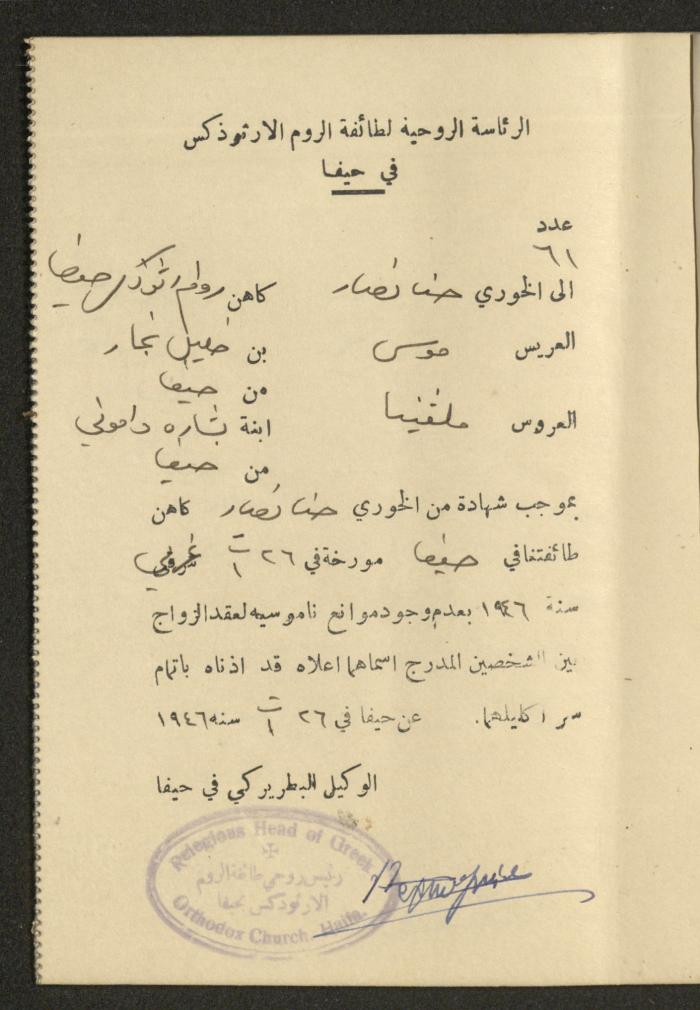 الرئاسة الروحية لطائفة الروم الارثوذكس
في حيفا
عدد
٦١
الى الخوري حنا نصار كاهن روم ارثوذكس حيفا
العريس موسى بن خليل نجار
من حيفا
العروس ملفينا ابنة بشاره داموني
من حيفا
بموجب شهادة من الخوري حنا نصار كاهن
طائفتنا في حيفا مورخة في ٢٦ ت ١
سنة ١٩٤٦ بعدم وجود موانع ناموسيه لعقد الزواج
بين الشخصين المدرج اسماهما اعلاه قد اذناه باتمام
سر اكليلهما. عن حيفا في ٢٦ ت ١ سنه ١٩٤٦
الوكيل البطريركي في حيفا
Relegious Head of Greek
رئيس روحي طائفة الروم
الارثوذكس بحيفا
Orthodox Church Haifa.